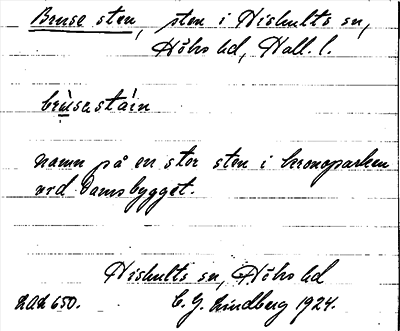 Bruse sten, sten i Hishults sn,
Höks hd, Hall. l.
brùsestáin
namn på en stor sten i kronoparken
vid Damsbygget.
Hishults sn, Höks hd
LAL 650. C. G. Lindberg 1924.